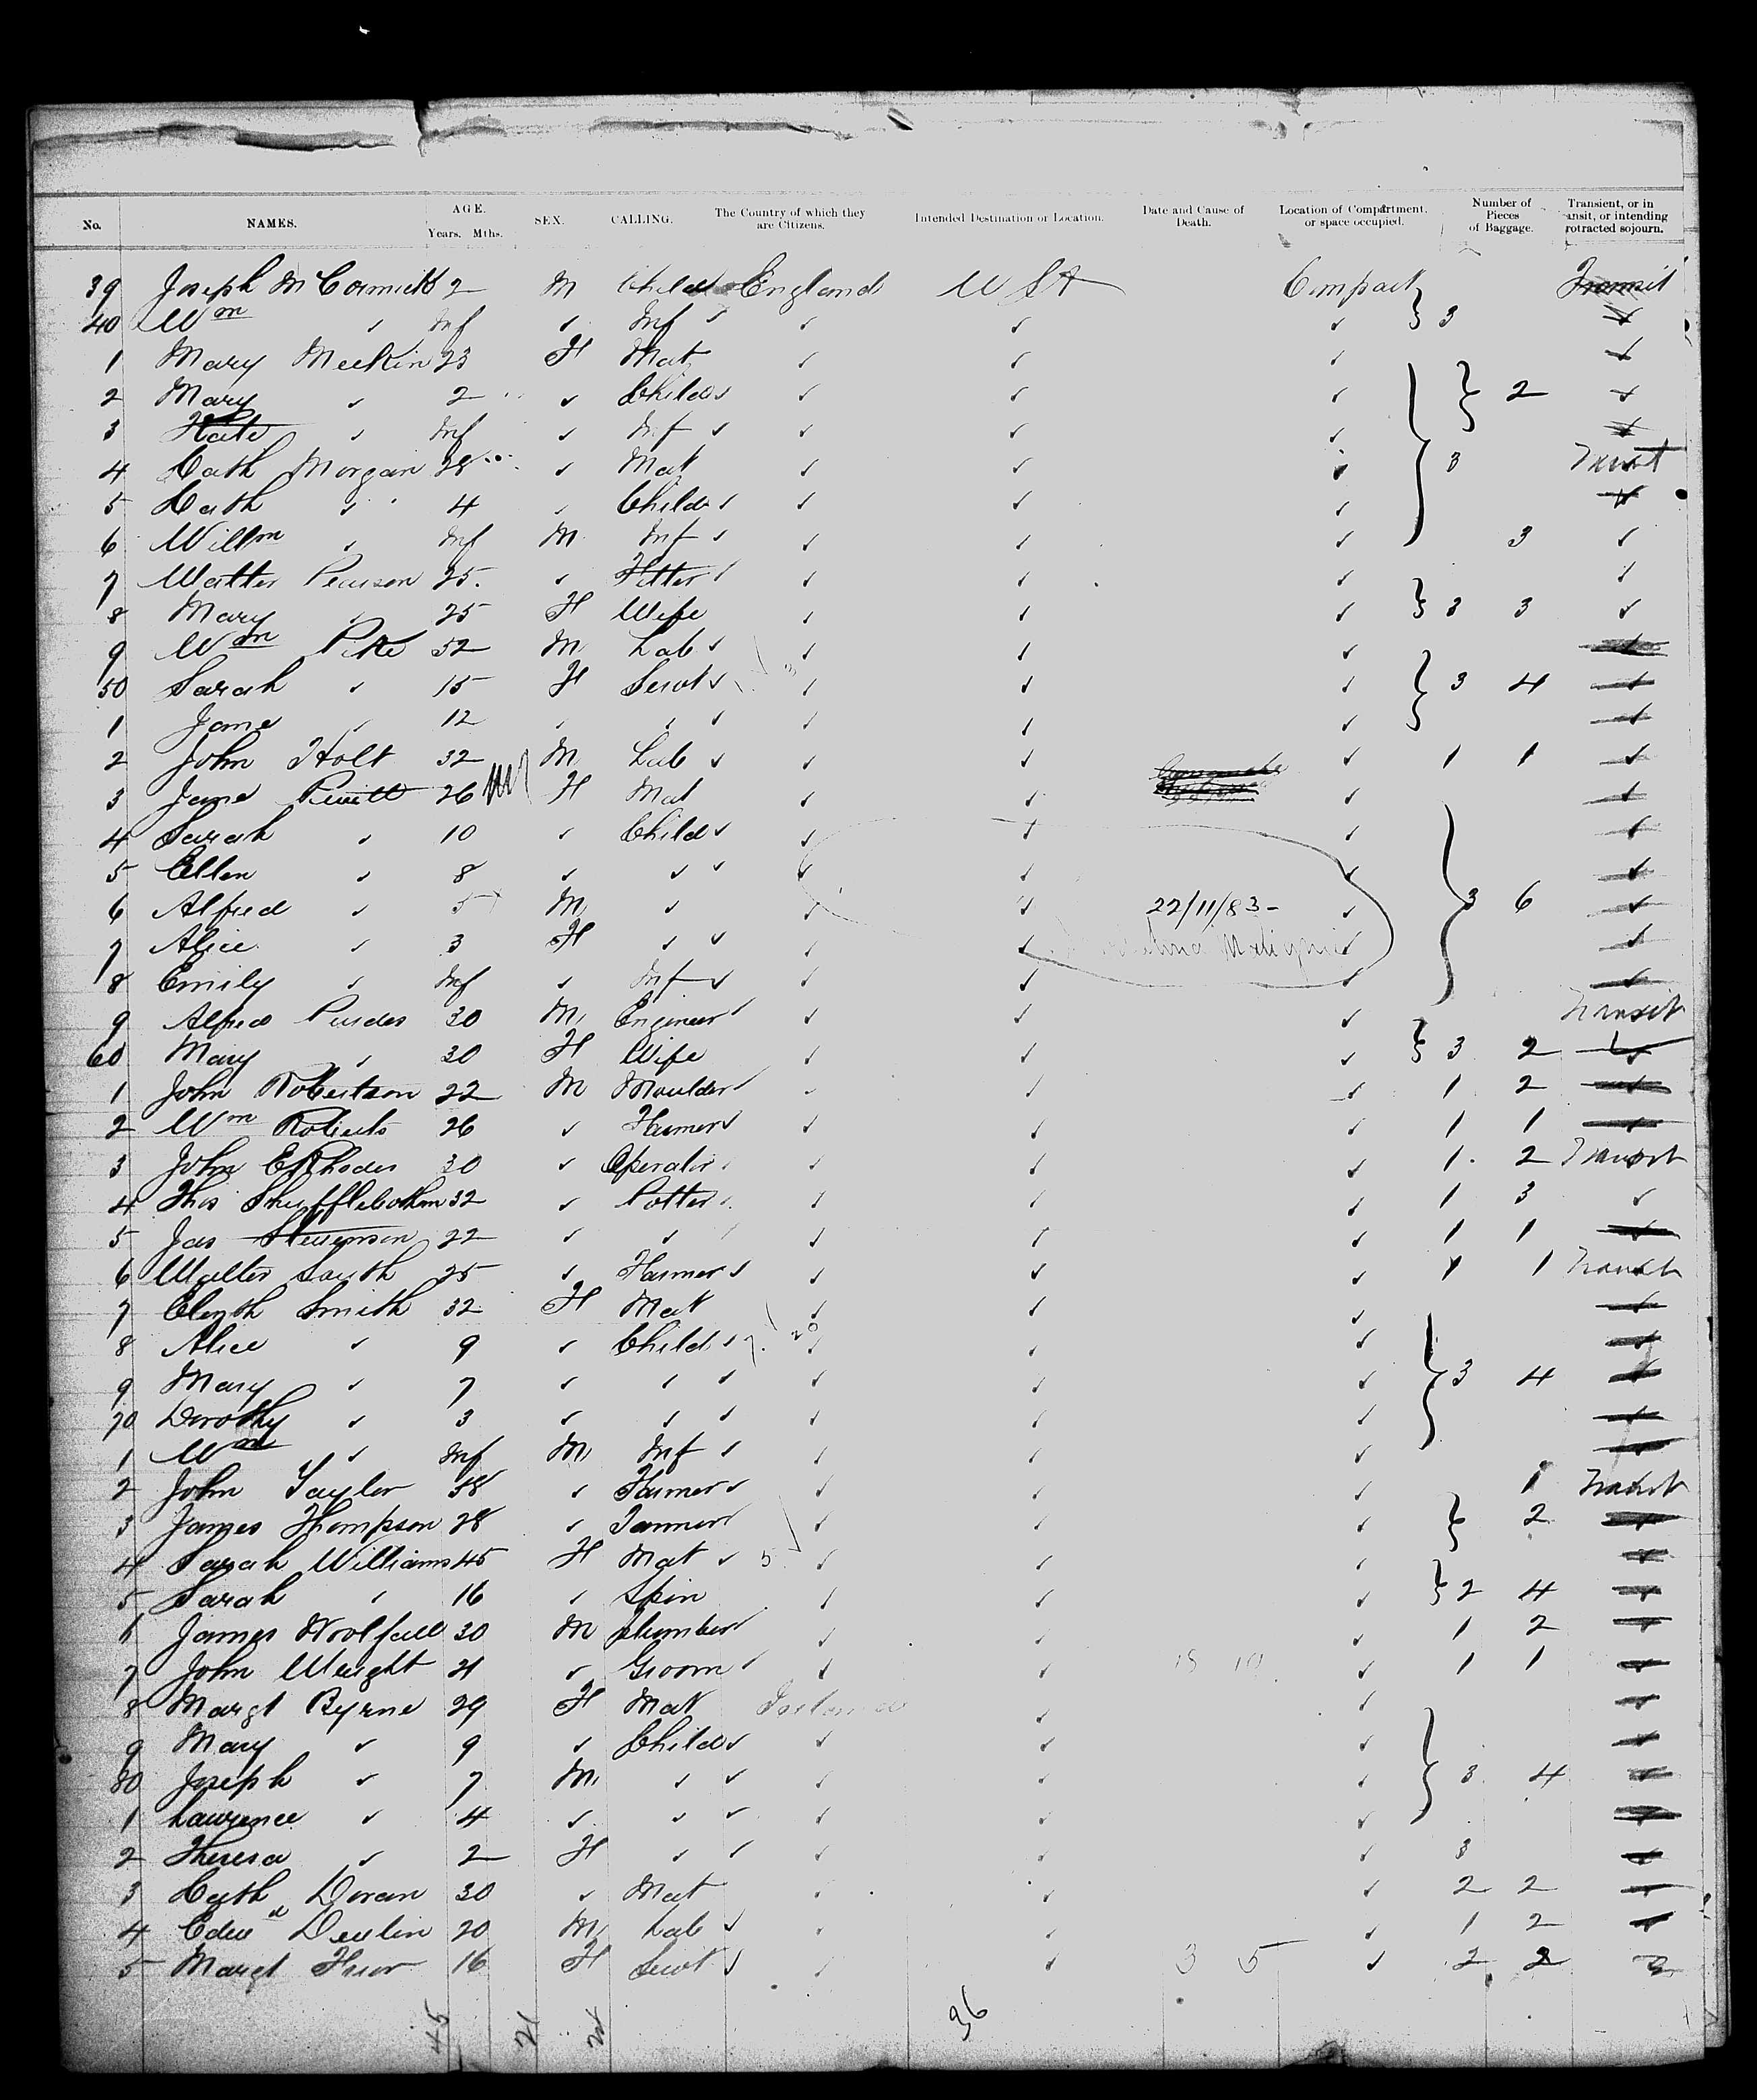 No. NAMES. AGE. Years. Mths. SEX. CALLING. The Country of which they are Citizens. Intended Destination or Location. Date and Cause of Death. Location of Compartment, or space occupied. Number of Pieces of Baggage. Transient, or in ansit, or intending rotracted sojourn.
39 Joseph McCormick 2 M Child England USA Compart Transit
40 Wm ✓ Inf ✓ Inf ✓ ✓ ✓ ✓ 3 ✓
1 Mary Meekin 23 F Mat ✓ ✓ ✓ ✓
2 Mary ✓ 2 ✓ Child ✓ ✓ ✓ ✓ 2 ✓
3 Kate ✓ Inf ✓ Inf ✓ ✓ ✓ ✓ ✓
4 Cath Morgan 28 ✓ Mat ✓ ✓ ✓ 3 Transit
5 Cath ✓ 4 ✓ Child ✓ ✓ ✓ ✓ ✓
6 Willm ✓ Inf M Inf ✓ ✓ ✓ ✓ 3 ✓
7 Walter Pearson 25 ✓ Fitter ✓ ✓ ✓ ✓ ✓
8 Mary ✓ 25 F Wife ✓ ✓ ✓ 3 3 ✓
9 Wm Pike 52 M Lab ✓ ✓ ✓ ✓ ✓
50 Sarah ✓ 15 F Servt ✓ ✓ ✓ ✓ 3 4 ✓
1 Jane ✓ 12 ✓ ✓ ✓ ✓ ✓ ✓ ✓
2 John Holt 32 M Lab ✓ ✓ ✓ ✓ 1 1 ✓
3 Jane 26 F Mat ✓ ✓ ✓
4 Sarah ✓ 10 ✓ Child ✓ ✓ ✓ ✓ ✓
5 Ellen ✓ 8 ✓ ✓ ✓ ✓ ✓ ✓ ✓
6 Alfred ✓ 5 M ✓ ✓ ✓ 22/11/83- ✓ 3 6 ✓
7 Alice ✓ 3 F ✓ ✓ ✓ ✓ ✓
8 Emily ✓ Inf ✓ Inf ✓ ✓ ✓ ✓ ✓
9 Alfred 30 M Engineer ✓ ✓ ✓ ✓ Transit
60 Mary ✓ 30 F Wife ✓ ✓ ✓ 3 2 ✓
1 John Robertson 22 M Moulder ✓ ✓ ✓ ✓ 1 2 ✓
2 Wm Roberts 26 ✓ Farmer ✓ ✓ ✓ ✓ 1 1 ✓
3 John E Rhodes 30 ✓ Operator ✓ ✓ ✓ ✓ 1 2 Transit
4 Thos Shufflebotham 32 ✓ Potter ✓ ✓ ✓ 1 3 ✓
5 Jas Stevenson 22 ✓ ✓ ✓ ✓ ✓ ✓ 1 1 ✓
6 Walter 25 ✓ Farmer ✓ ✓ ✓ ✓ 1 1 Transit
7 Elizth Smith 32 F Mat ✓ ✓ ✓ ✓
8 Alice ✓ 9 ✓ Child ✓ 20 ✓ ✓ ✓ ✓
9 Mary ✓ 7 ✓ ✓ ✓ ✓ ✓ ✓ 3 4 ✓
70 Dorothy ✓ 3 ✓ ✓ ✓ ✓ ✓ ✓ ✓
1 Wm ✓ Inf M Inf ✓ ✓ ✓ ✓ ✓
2 John Taylor 38 ✓ Farmer ✓ ✓ ✓ ✓ 1 Transit
3 James Thompson 28 ✓ Tanner ✓ ✓ ✓ ✓ 2 ✓
4 Sarah Williams 45 F Mat ✓ 5 ✓ ✓ ✓ ✓
5 Sarah ✓ 16 ✓ Spin ✓ ✓ ✓ 2 4 ✓
6 James Woolfall 30 M Plumber ✓ ✓ ✓ ✓ 1 2 ✓
7 John Wright 21 ✓ Groom ✓ ✓ ✓ ✓ 1 1 ✓
8 Margt Byrne 29 F Mat Ireland ✓ ✓ ✓
9 Mary ✓ 9 ✓ Child ✓ ✓ ✓ ✓ ✓
80 Joseph ✓ 7 M ✓ ✓ ✓ ✓ ✓ 3 4 ✓
1 Lawrence ✓ 4 ✓ ✓ ✓ ✓ ✓ ✓ ✓
2 Theresa ✓ 2 F ✓ ✓ ✓ ✓ ✓ 3 ✓
3 Cath Doran 30 ✓ Mat ✓ ✓ ✓ 2 2 ✓
4 Edwd Devlin 20 M Lab ✓ ✓ ✓ ✓ 1 2 ✓
5 Margt 16 F Servt ✓ ✓ ✓ 3 5 ✓ 2 2
45 21 24 36